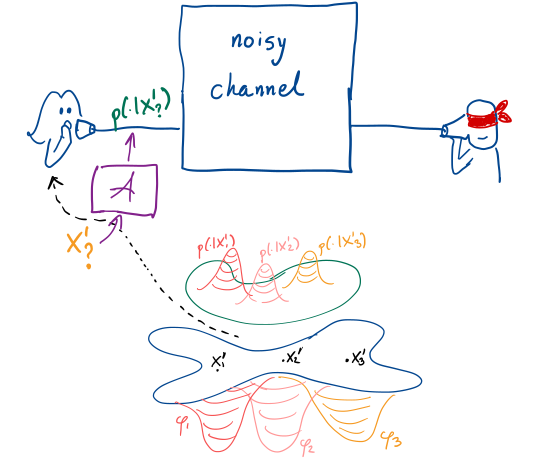 noisy
channel
p(·|X'?)
A
X'?
p(·|X'1) p(·|X'2) p(·|X'3)
X'1 X'2 X'3
φ1 φ2 φ3